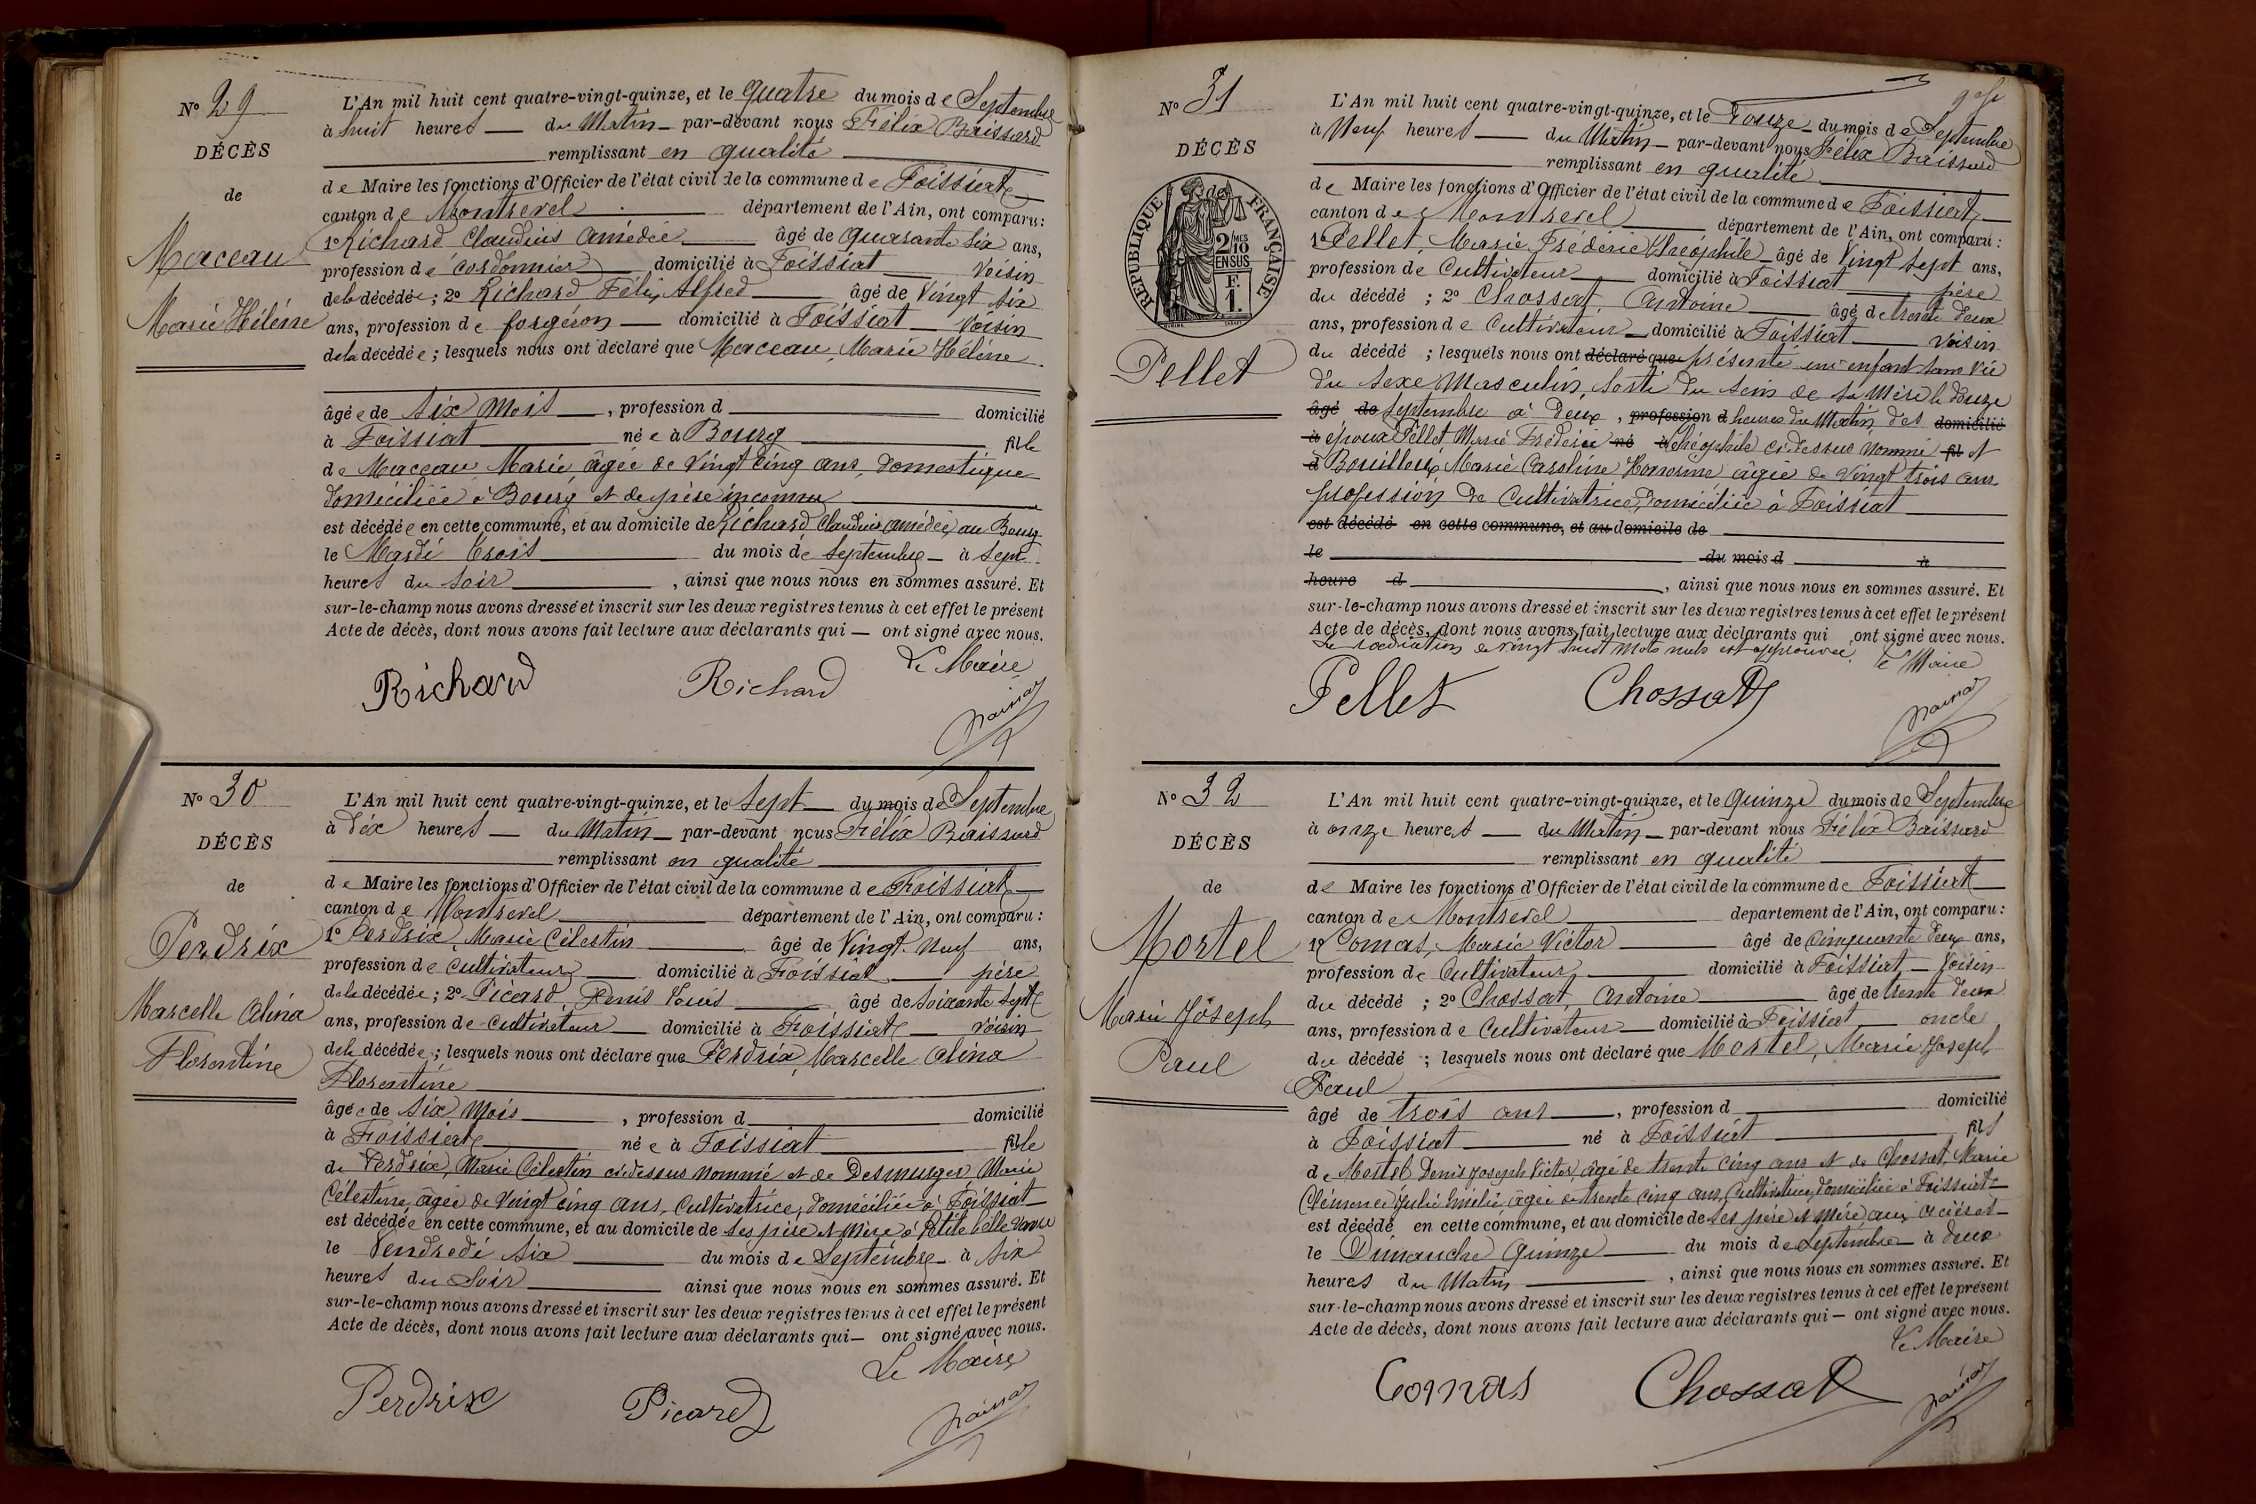 Nº 29
DÉCÈS
de
Maceau
Marie Hélène
L'An mil huit cent quatre-vingt-quinze, et le quatre du mois de Septembre
à huit heures du Matin par-devant nous Félix Baissard
remplissant en qualité
de Maire les fonctions d'Officier de l'état civil de la commune de Foissiat
canton de Montrevel département de l'Ain, ont comparu :
1º Richard Claudius Amédée âgé de quarante six ans,
profession de cordonnier domicilié à Foissiat Voisin
de la décédée ; 2º Richard, Félix Alfred âgé de Vingt six
ans, profession de forgeron domicilié à Foissiat Voisin
de la décédée ; lesquels nous ont déclaré que Maceau, Marie Hélène
âgée de six Mois, profession d domicilié
à Foissiat née à Bourg fille
de Maceau Marie, âgée de Vingt cinq ans, domestique
domiciliée à Bourg et de père inconnu
est décédée en cette commune, et au domicile de Richard Claudius amédée, au Bourg
le Mardi trois du mois de Septembre à Sept
heures du soir, ainsi que nous nous en sommes assuré. Et
sur-le-champ nous avons dressé et inscrit sur les deux registres tenus à cet effet le présent
Acte de décès, dont nous avons fait lecture aux déclarants qui — ont signé avec nous.
Le Maire
Richard Richard
Nº 30
DÉCÈS
de
Perdrix
Marcelle Alina
Florentine
L'An mil huit cent quatre-vingt-quinze, et le Sept du mois de Septembre
à dix heures du Matin par-devant nous Félix Baissard
remplissant en qualité
de Maire les fonctions d'Officier de l'état civil de la commune de Foissiat
canton de Montrevel département de l'Ain, ont comparu :
1º Perdrix, Marie Célestin âgé de Vingt-Neuf ans,
profession de cultivateur domicilié à Foissiat père
de la décédée ; 2º Picard, Denis Louis âgé de soixante sept
ans, profession de cultivateur domicilié à Foissiat Voisin
de la décédée ; lesquels nous ont déclaré que Perdrix, Marcelle Alina
Florentine
âgée de Six Mois, profession d domicilié
à Foissiat née à Foissiat fille
de Perdrix, Marie Célestin ci-dessus nommé et de Desmurger, Marie
Célestine, âgée de Vingt cinq ans, Cultivatrice, domiciliée à Foissiat
est décédée en cette commune, et au domicile de ses père et mère à Petite belle
le Vendredi six du mois de Septembre à six
heures du Soir ainsi que nous nous en sommes assuré. Et
sur-le-champ nous avons dressé et inscrit sur les deux registres tenus à cet effet le présent
Acte de décès, dont nous avons fait lecture aux déclarants qui — ont signé avec nous.
Le Maire
Perdrix Picard
Nº 31
DÉCÈS
de
RÉPUBLIQUE FRANÇAISE
2/10 MES
EN SUS
F.
1.
Pellet
L'An mil huit cent quatre-vingt-quinze, et le Douze du mois de Septembre
à Neuf heures du Matin par-devant nous Félix Baissard
remplissant en qualité
de Maire les fonctions d'Officier de l'état civil de la commune de Foissiat
canton de Montrevel département de l'Ain, ont comparu :
1º Pellet, Marie Frédéric Théophile âgé de Vingt Sept ans,
profession de Cultivateur domicilié à Foissiat père
du décédé ; 2º Chossat, Antoine âgé de trente deux
ans, profession de Cultivateur domicilié à Foissiat Voisin
du décédé ; lesquels nous ont déclaré que présenté un enfant sans Vie
du sexe Masculin, sorti du sein de sa Mère le douze
âgé de Septembre à deux, profession d heures du Matin, des domicilié
à époux Pellet Marie Frédéric né à Théophile ci-dessus nommé fil et
d Bouilloux Marie Caroline Honorine âgée de vingt trois ans
profession de Cultivatrice, domiciliée à Foissiat
est décédé en cette commune, et au domicile de
le du mois d à
heure d, ainsi que nous nous en sommes assuré. Et
sur-le-champ nous avons dressé et inscrit sur les deux registres tenus à cet effet le présent
Acte de décès, dont nous avons fait lecture aux déclarants qui ont signé avec nous.
La radiation de vingt huit mots nuls est approuvée. Le Maire
Pellet Chossat
Nº 32
DÉCÈS
de
Mortel
Marie Joseph
Paul
L'An mil huit cent quatre-vingt-quinze, et le Quinze du mois de Septembre
à onze heures du Matin par-devant nous Félix Baissard
remplissant en qualité
de Maire les fonctions d'Officier de l'état civil de la commune de Foissiat
canton de Montrevel département de l'Ain, ont comparu :
1º Comas, Marie Victor âgé de cinquante deux ans,
profession de Cultivateur domicilié à Foissiat Voisin
du décédé ; 2º Chossat, Antoine âgé de trente deux
ans, profession de Cultivateur domicilié à Foissiat oncle
du décédé ; lesquels nous ont déclaré que Mortel, Marie Joseph
Paul
âgé de trois ans, profession d domicilié
à Foissiat né à Foissiat fils
de Mortel Denis Joseph Victor, âgé de trente cinq ans et de Chossat, Marie
Clémence Julie Emélie âgée de trente cinq ans, Cultivatrice, domiciliée à Foissiat
est décédé en cette commune, et au domicile de ses père et mère, aux
le Dimanche Quinze du mois de Septembre à deux
heures du Matin, ainsi que nous nous en sommes assuré. Et
sur-le-champ nous avons dressé et inscrit sur les deux registres tenus à cet effet le présent
Acte de décès, dont nous avons fait lecture aux déclarants qui — ont signé avec nous.
Le Maire
Comas Chossat